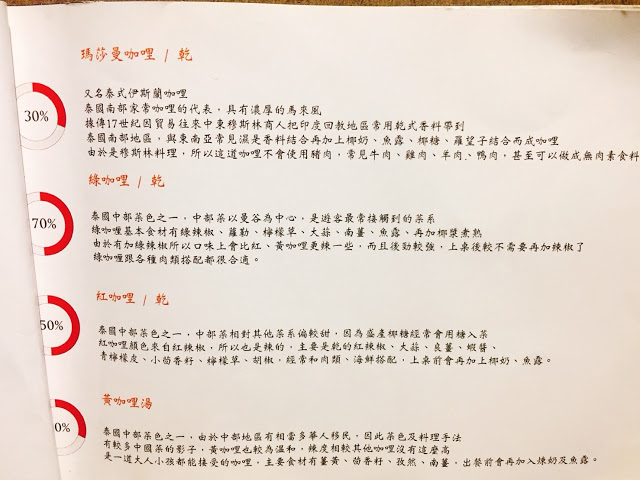 瑪莎曼咖哩 / 乾
30%
又名泰式伊斯蘭咖哩
泰國南部家常咖哩的代表，具有濃厚的馬來風
據傳17世紀因貿易往來中東穆斯林商人把印度回教地區常用乾式香料帶到
泰國南部地區，與東南亞常見濕是香料結合再加上椰奶、魚露、椰糖、羅望子結合而成咖哩
由於是穆斯林料理，所以這道咖哩不會使用豬肉，常見牛肉、雞肉、羊肉、鴨肉，甚至可以做成無肉素食料
綠咖哩 / 乾
70%
泰國中部菜色之一，中部菜以曼谷為中心，是遊客最常接觸到的菜系
綠咖哩基本食材有綠辣椒、蘿勒、檸檬草、大蒜、南薑、魚露、再加椰漿煮熟
由於有加綠辣椒所以口味上會比紅、黃咖哩更辣一些，而且後勁較強，上桌後較不需要再加辣椒了
綠咖哩跟各種肉類搭配都很合適。
紅咖哩 / 乾
50%
泰國中部菜色之一，中部菜相對其他菜系偏較甜，因為盛產椰糖經常會用糖入菜
紅咖哩顏色來自紅辣椒，所以也是辣的，主要是乾的紅辣椒、大蒜、良薑、蝦醬、
青檸檬皮、小茴香籽、檸檬草、胡椒，經常和肉類、海鮮搭配，上桌前會再加上椰奶、魚露。
黃咖哩湯
0%
泰國中部菜色之一，由於中部地區有相當多華人移民，因此菜色及料理手法
有較多中國菜的影子，黃咖哩也較為溫和，辣度相較其他咖哩沒有這麼高
是一道大人小孩都能接受的咖哩，主要食材有薑黃、茴香籽、孜然、南薑，出餐前會再加入煉奶及魚露。